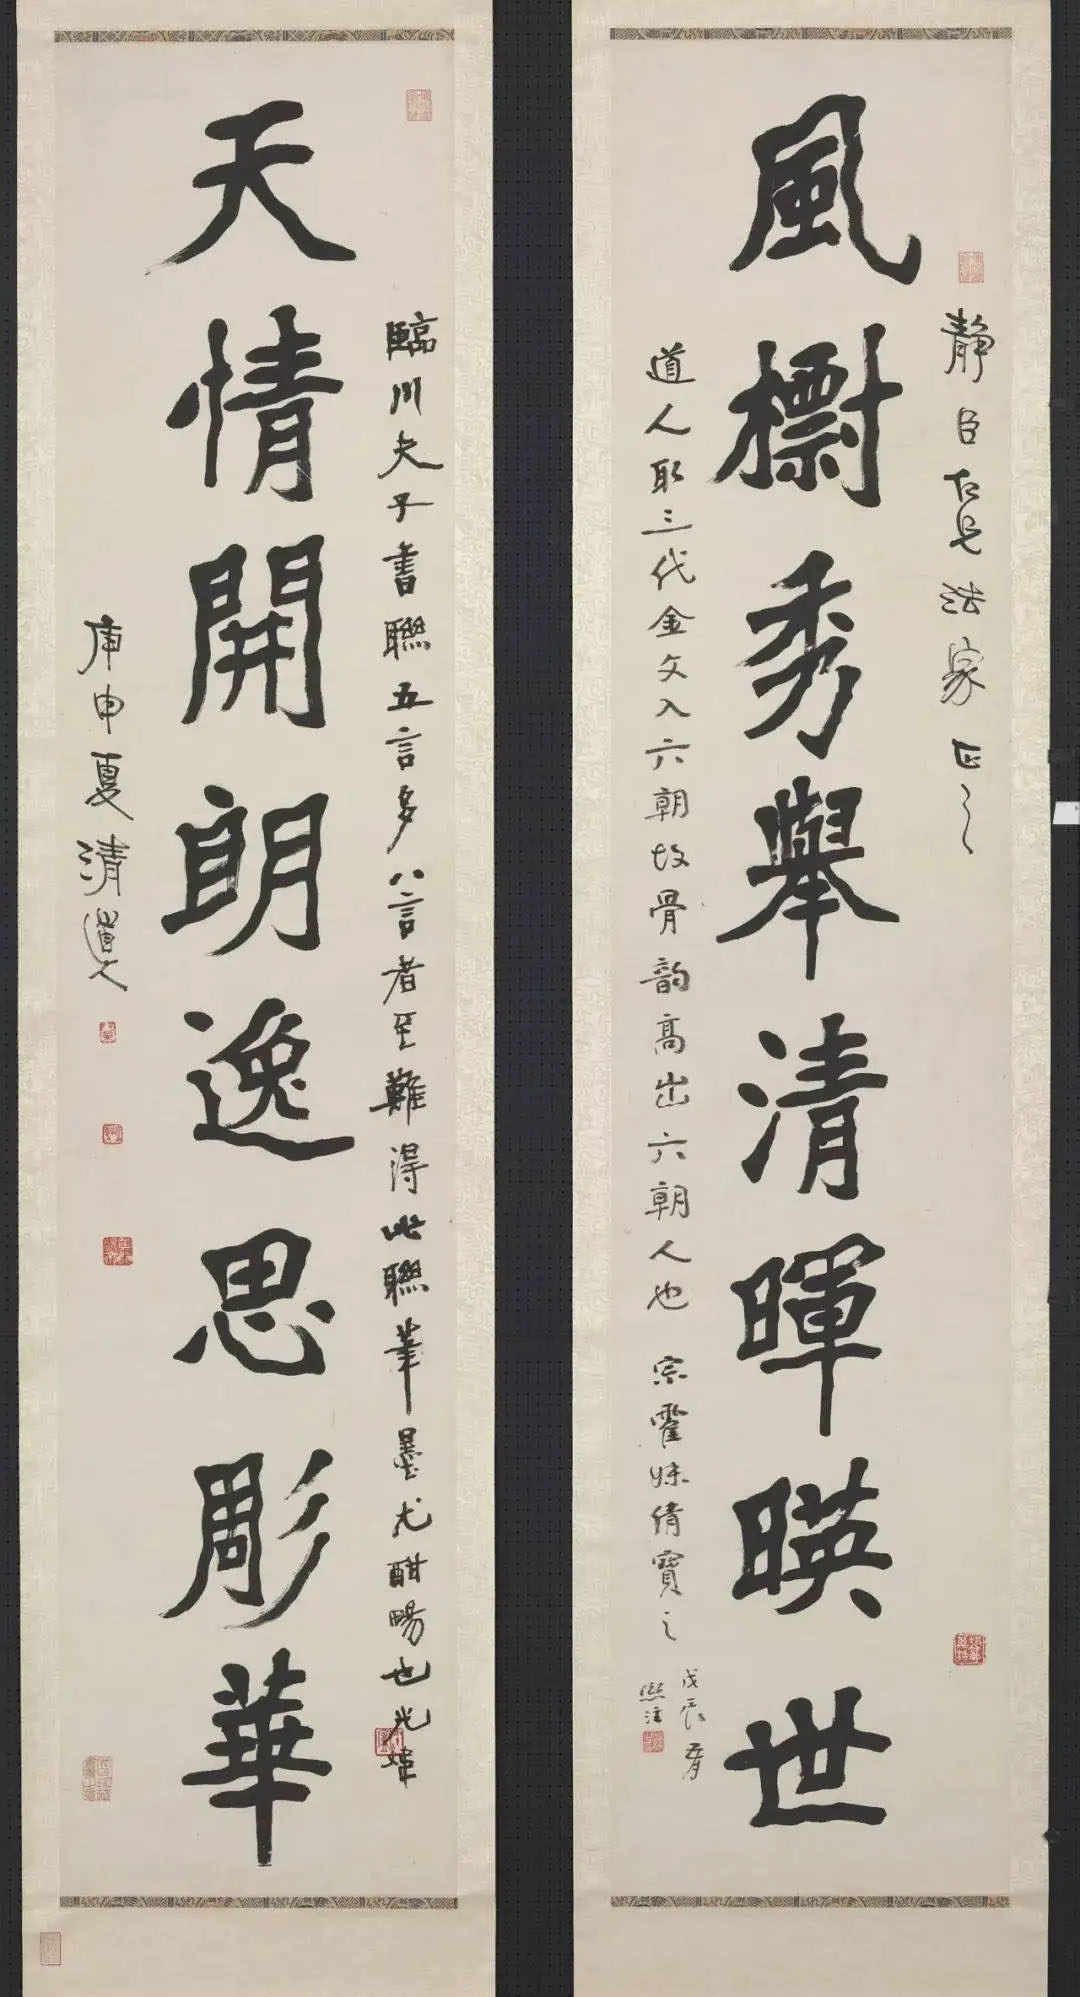 靜臣仁兄法家正之
風櫥秀舉清暉映世
道人取三代金文入六朝故骨韵高出六朝人也 宗霍妹倩寶之
戊辰
熙注
臨川夫子書聯五言多八言者至難得此聯筆墨尤酣暢也光煒
天情開朗逸思彫華
庚申夏清道人